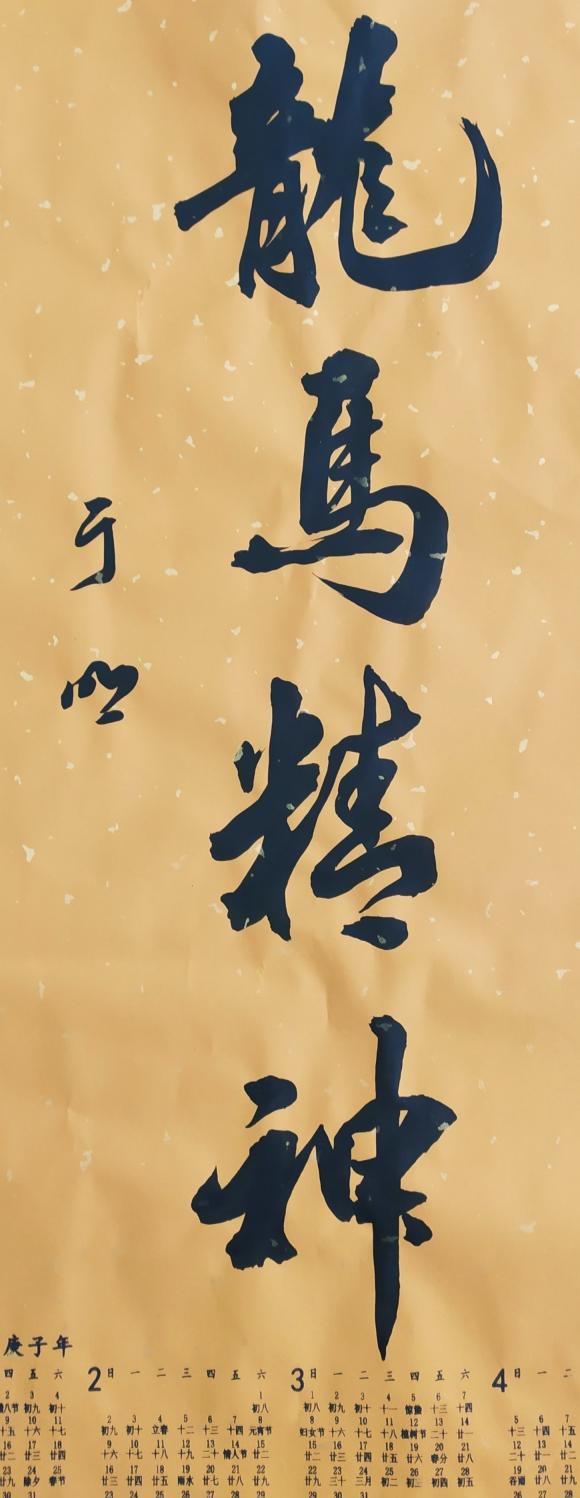 龍馬精神
于明
庚子年
四 五 六 2 日 一 二 三 四 五 六 3 日 一 二 三 四 五 六 4 日 一 二
2 3 4 1 1 2 3 4 5 6 7
八节 初九 初十 初八 初八 初九 初十 十一 惊蛰 十三 十四
9 10 11 2 3 4 5 6 7 8 8 9 10 11 12 13 14 5 6 7
十五 十六 十七 初九 初十 立春 十二 十三 十四 元宵节 妇女节 十六 十七 十八 植树节 二十 廿一 十三 十四 十五
16 17 18 9 10 11 12 13 14 15 15 16 17 18 19 20 21 12 13 14
廿二 廿三 廿四 十六 十七 十八 十九 二十 情人节 廿二 廿二 廿三 廿四 廿五 廿六 春分 廿八 二十 廿一 廿二
23 24 25 16 17 18 19 20 21 22 22 23 24 25 26 27 28 19 20 21
廿九 除夕 春节 廿三 廿四 廿五 雨水 廿七 廿八 廿九 廿九 三十 三月 初二 初三 初四 初五 谷雨 廿八 廿九
30 31 23 24 25 26 27 28 29 29 30 31 26 27 28